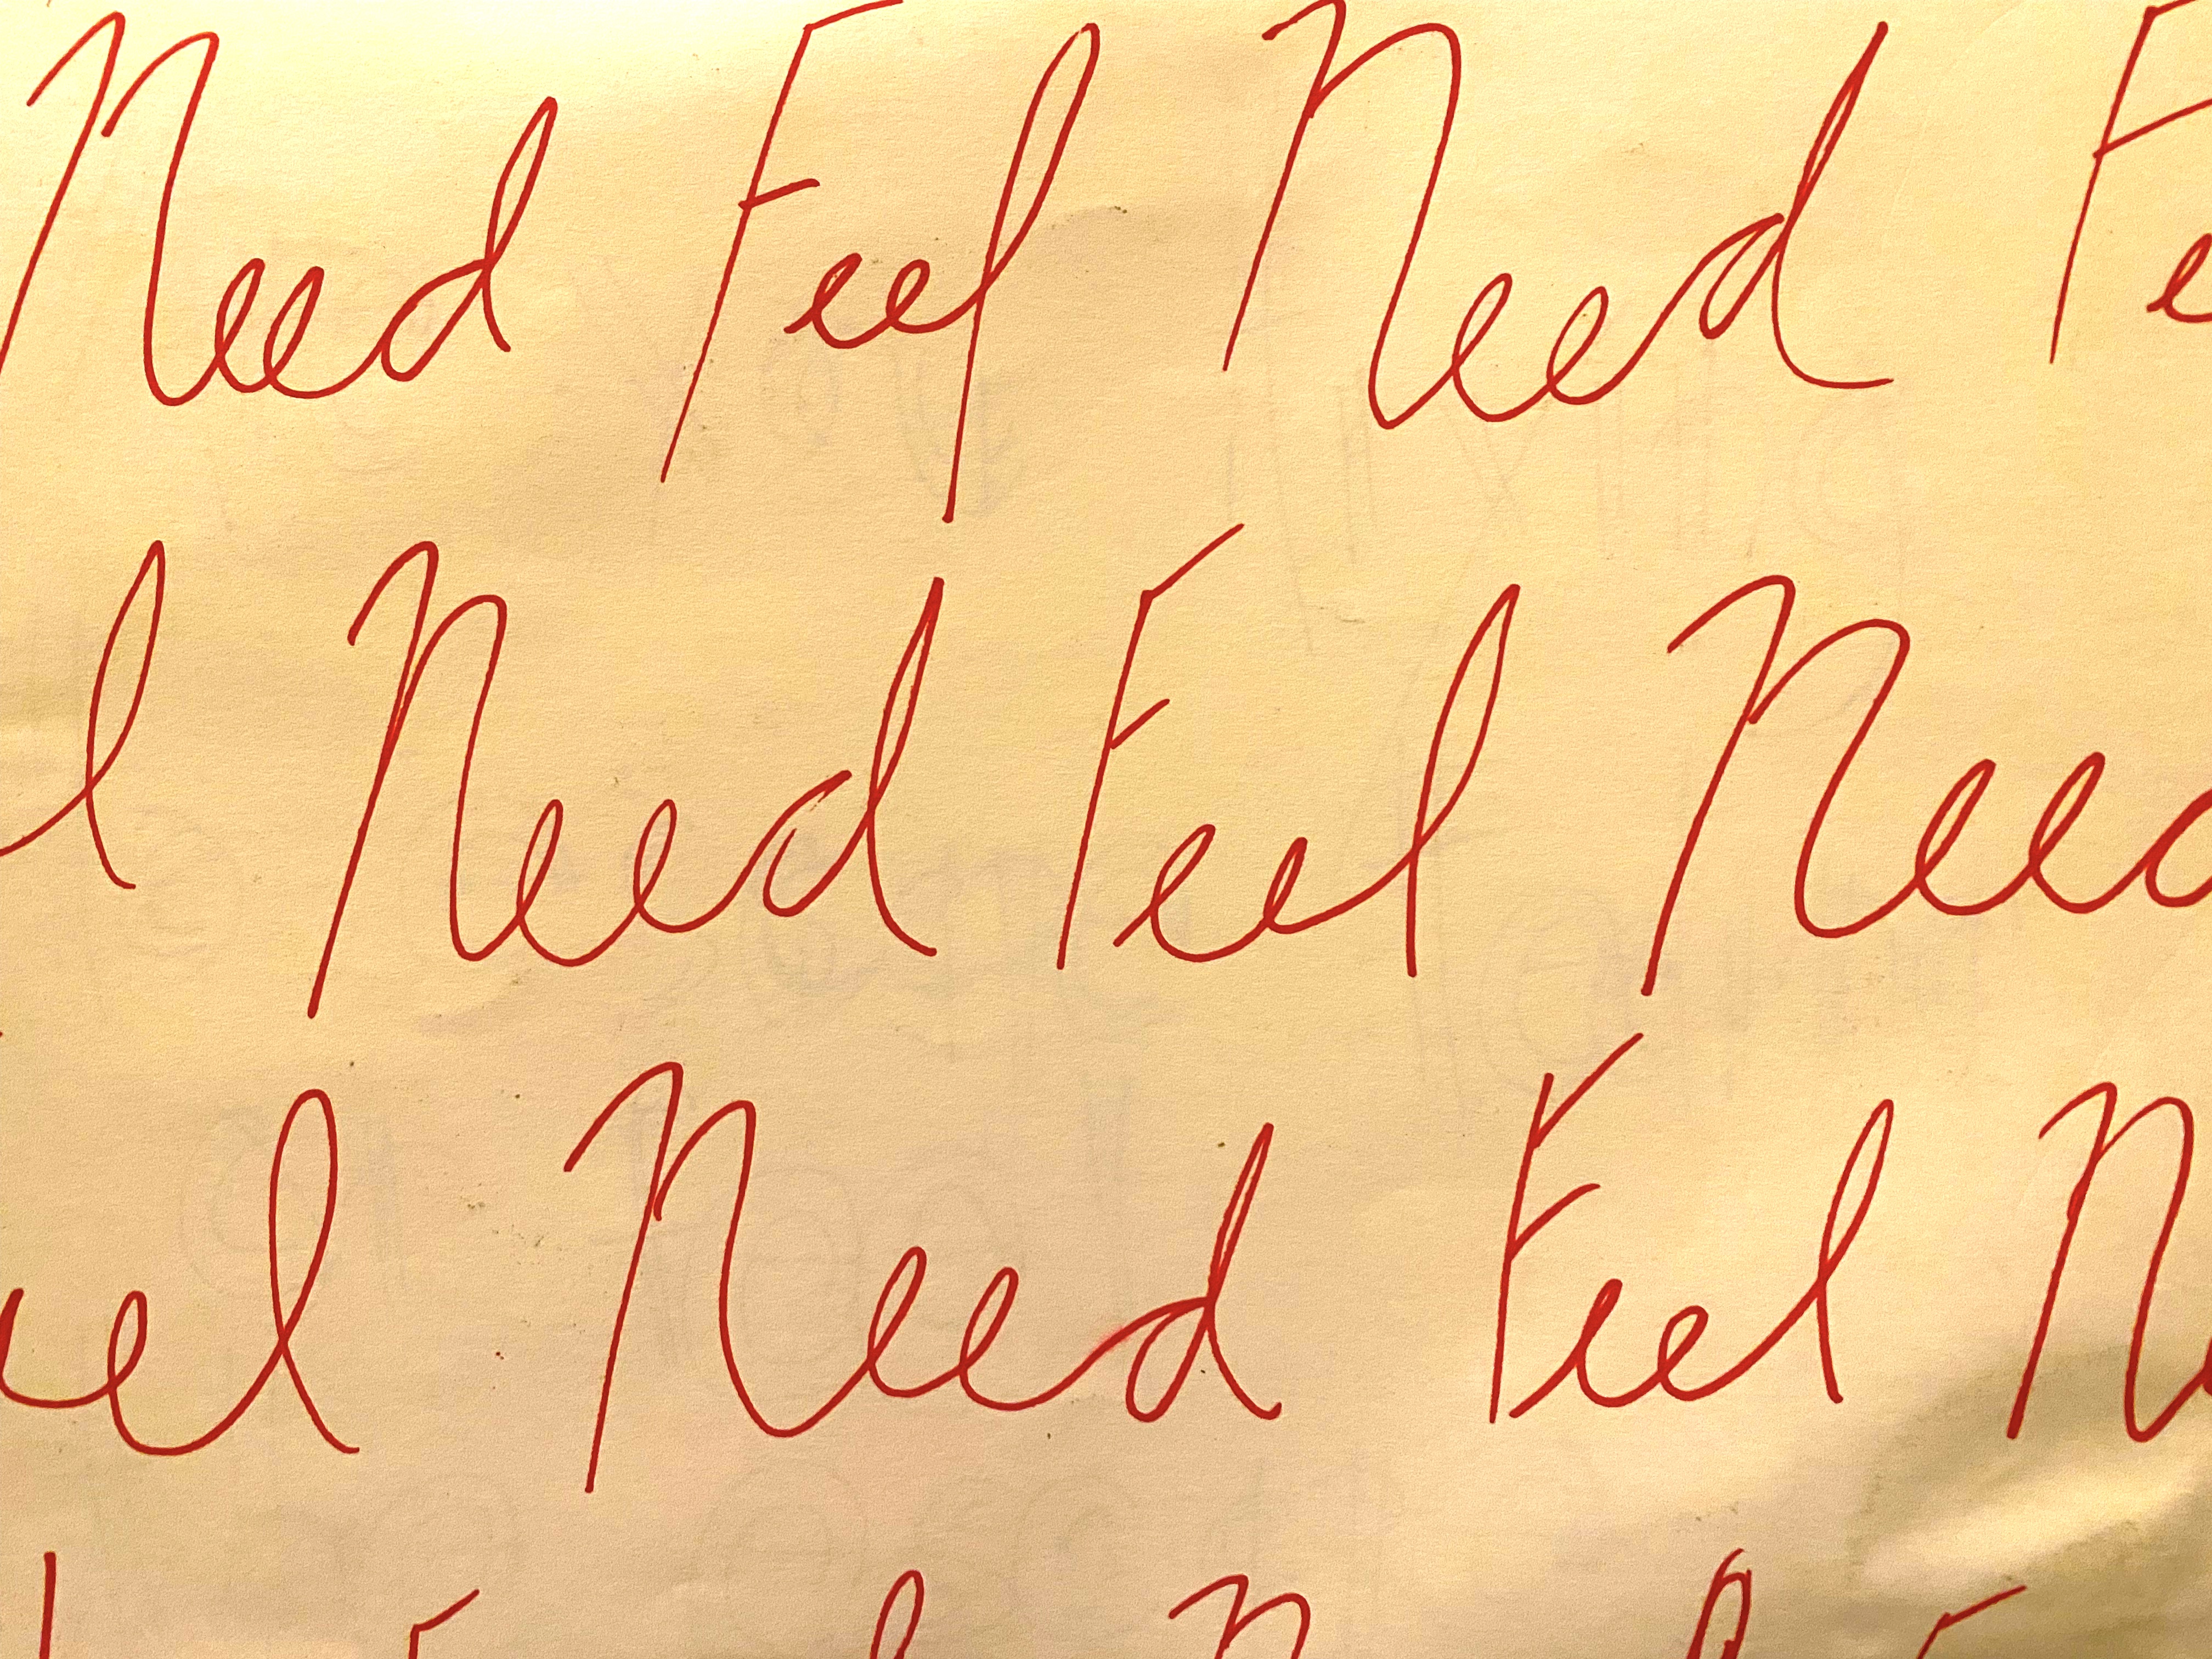 Need Feel Need Fe
l Need Feel Need
eel Need Feel N